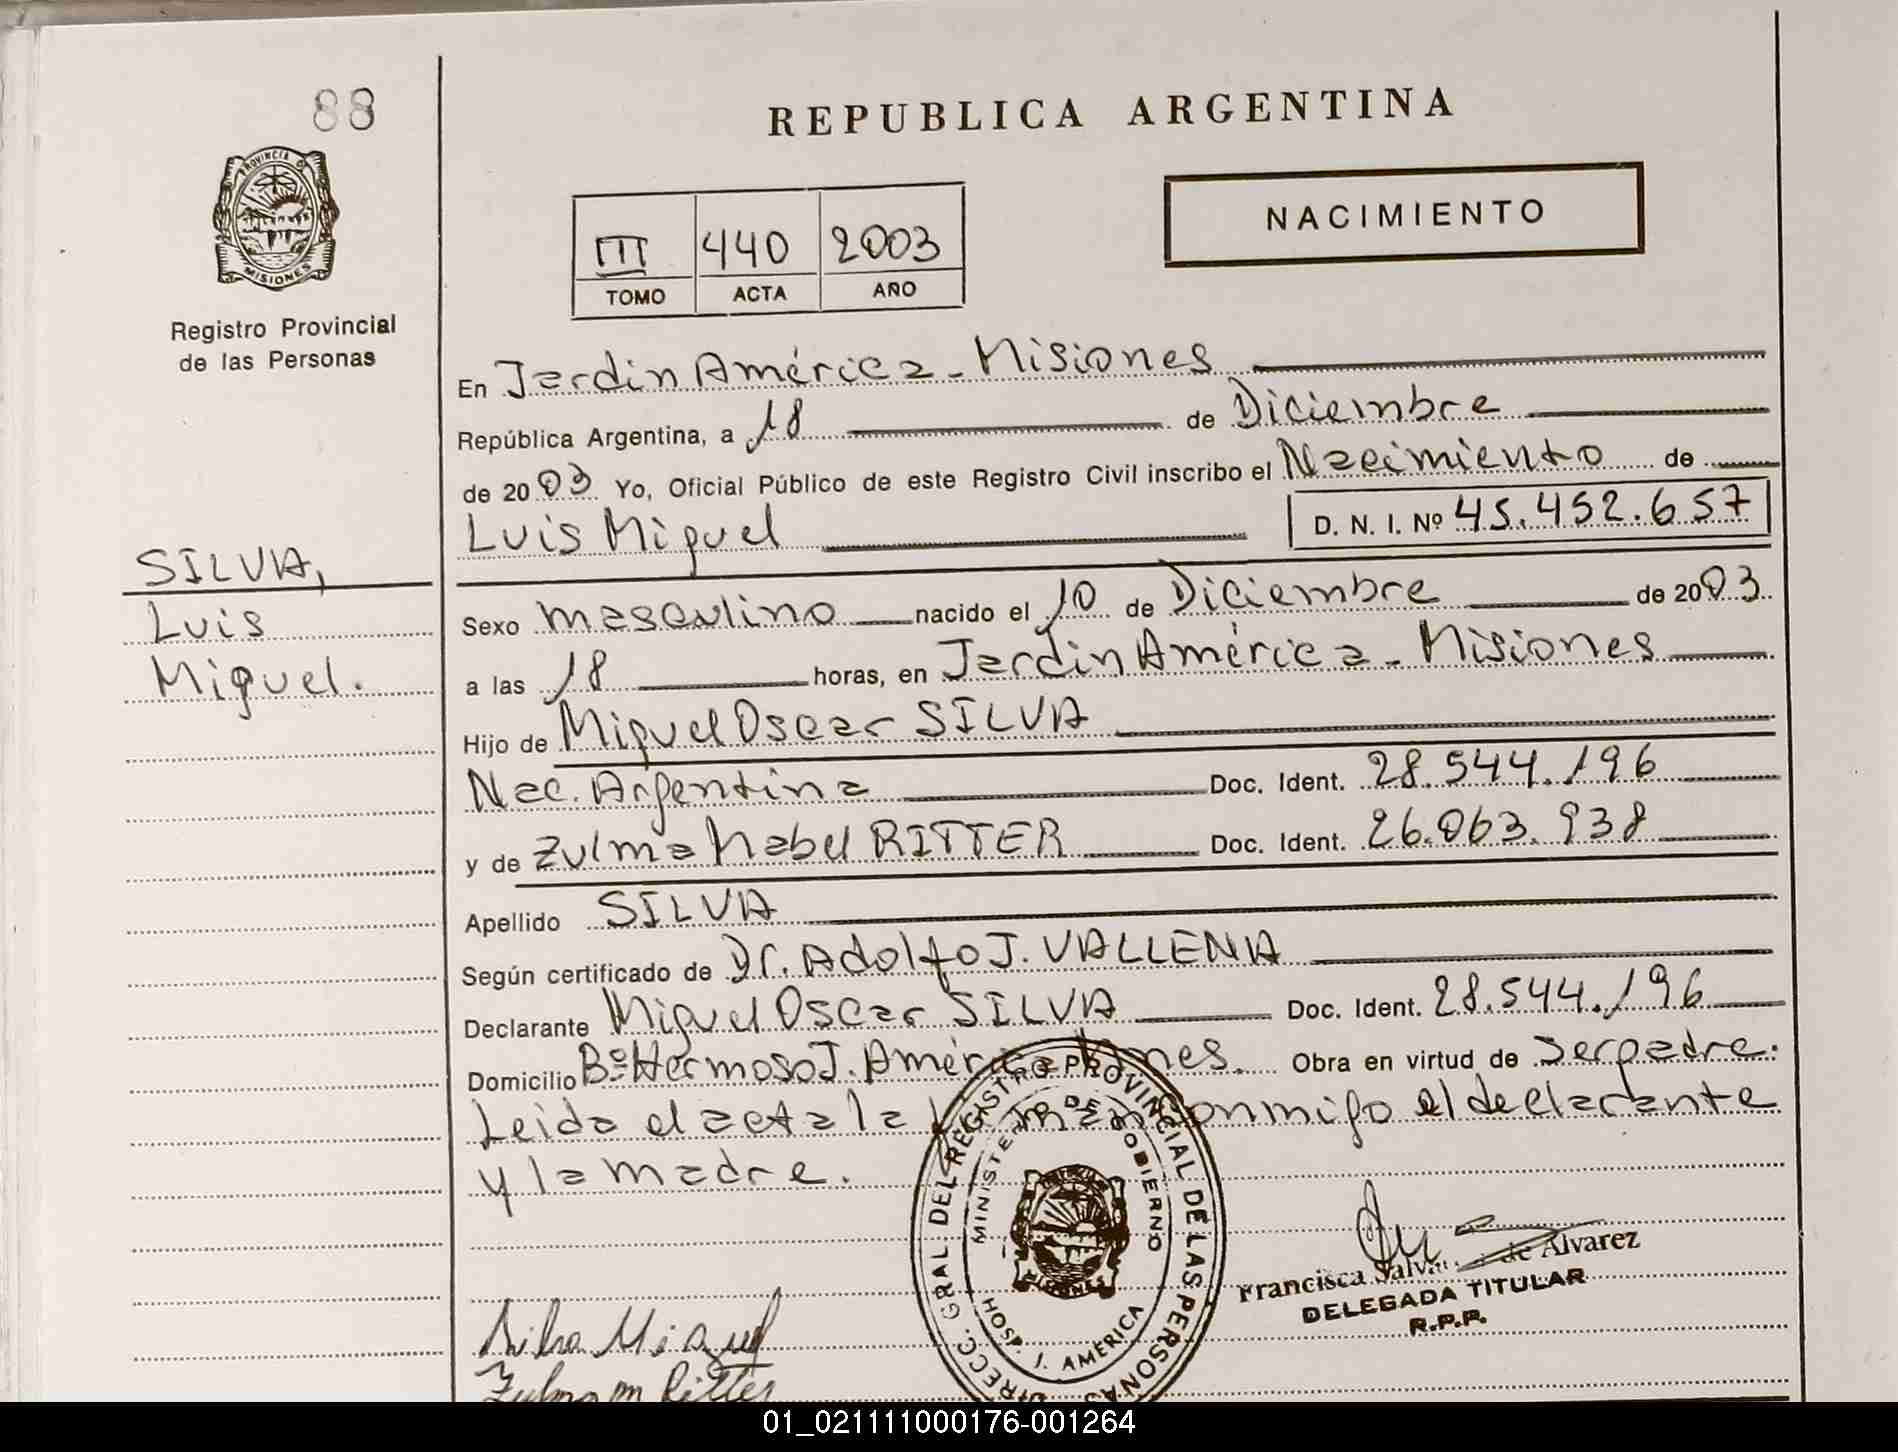 88
REPUBLICA ARGENTINA
PROVINCIA D
MISIONES
NACIMIENTO
III 440 2003
TOMO ACTA AÑO
Registro Provincial
de las Personas
En Jardin América - Misiones
República Argentina, a 18 de Diciembre
de 2003 Yo, Oficial Público de este Registro Civil inscribo el Nacimiento de
Luis Miguel D. N. I. Nº 45.452.657
SILVA,
Luis
Miguel.
Sexo masculino nacido el 10 de Diciembre de 2003
a las 18 horas, en Jardin América - Misiones
Hijo de Miguel Oscar SILVA
Nac. Argentina Doc. Ident. 28.544.196
y de Zulma Mabel RITTER Doc. Ident. 26.063.938
Apellido SILVA
Según certificado de Dr. Adolfo J. VALLENA
Declarante Miguel Oscar SILVA Doc. Ident. 28.544.196
Domicilio Bº Hermoso J. América Mnes. Obra en virtud de ser padre.
Leida el acta la conmigo el declarante
y la madre.
DIRECC. GRAL. DEL REGISTRO PROVINCIAL DE LAS PERSONAS
MINISTERIO DE GOBIERNO
MISIONES
HOSP. J. AMERICA
Francisca de Alvarez
DELEGADA TITULAR
R.P.P.
Silva Miguel
Zulma M Ritter
01_021111000176-001264